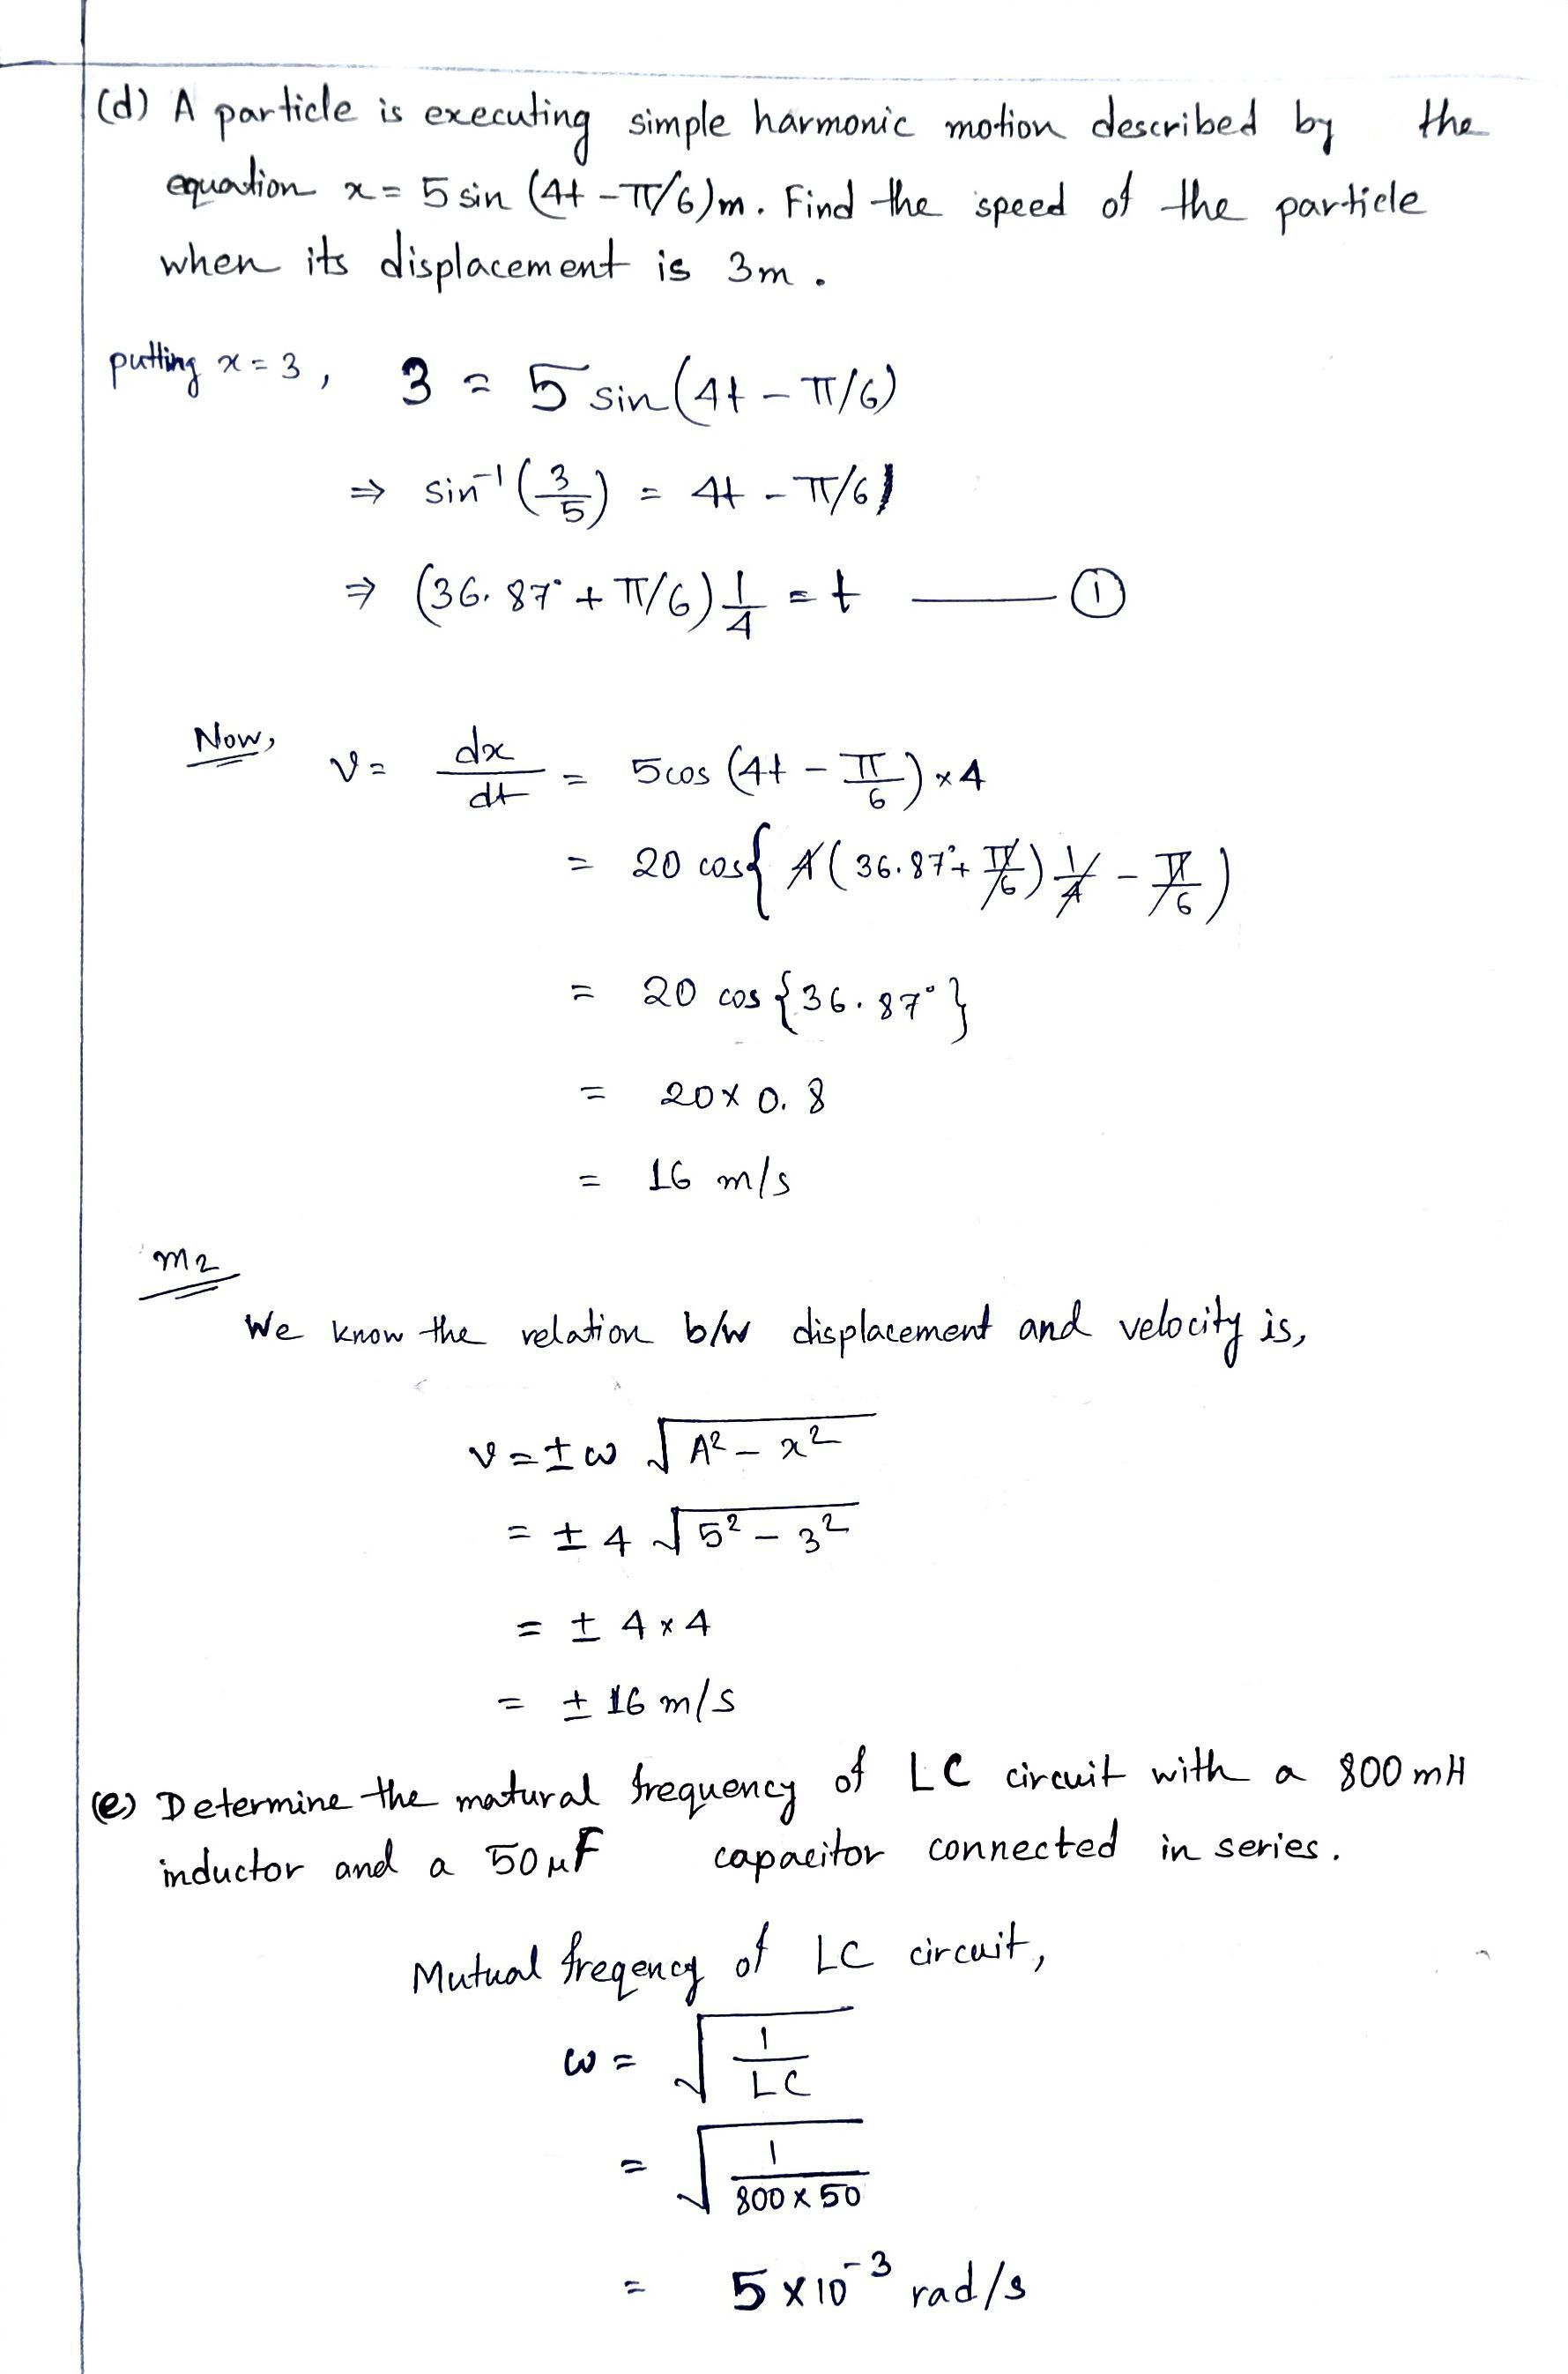 (d) A particle is executing simple harmonic motion described by the
equation x = 5 sin (4t - π/6)m. Find the speed of the particle
when its displacement is 3m.
putting x = 3, 3 = 5 sin(4t - π/6)
⇒ sin⁻¹(3/5) = 4t - π/6
⇒ (36.87° + π/6) 1/4 = t —— ①
Now, v = dx/dt = 5cos (4t - π/6) × 4
= 20 cos{ 4(36.87° + π/6) 1/4 - π/6 )
= 20 cos {36.87°}
= 20 × 0.8
= 16 m/s
m2
We know the relation b/w displacement and velocity is,
v = ± ω √(A² - x²)
= ± 4 √(5² - 3²)
= ± 4 × 4
= ± 16 m/s
(e) Determine the matural frequency of LC circuit with a 800 mH
inductor and a 50 μF capacitor connected in series.
Mutual freqency of LC circuit,
ω = √(1/LC)
= √(1/800 × 50)
= 5 × 10⁻³ rad/s